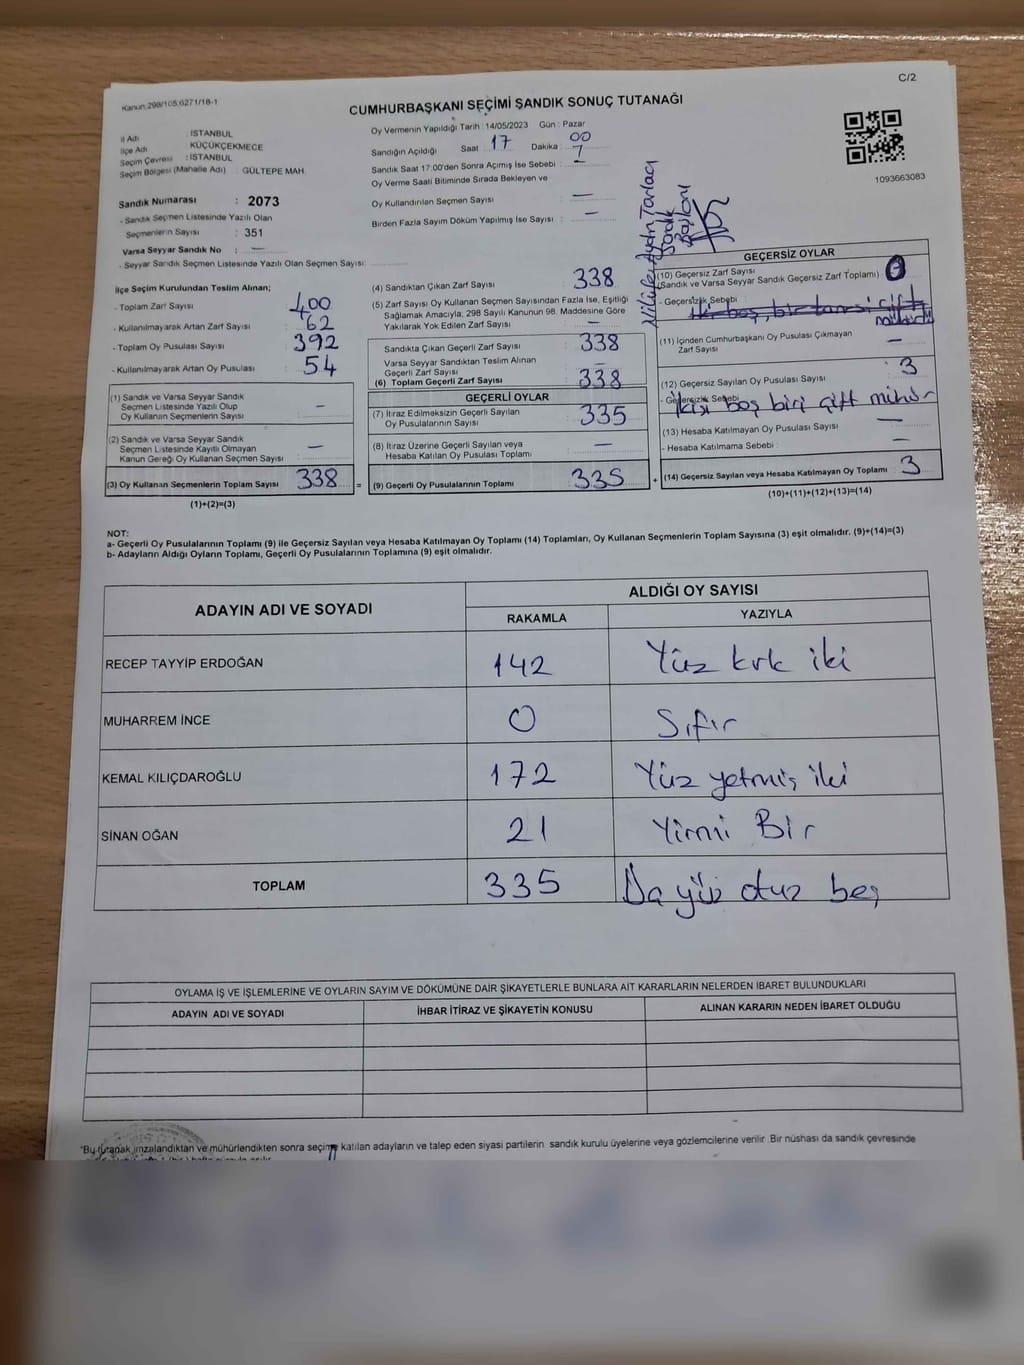 C/2
Kanun:298/105,6271/18-1
CUMHURBAŞKANI SEÇİMİ SANDIK SONUÇ TUTANAĞI
İl Adı : İSTANBUL
İlçe Adı : KÜÇÜKÇEKMECE
Seçim Çevresi : İSTANBUL
Seçim Bölgesi (Mahalle Adı) : GÜLTEPE MAH.
Sandık Numarası : 2073
- Sandık Seçmen Listesinde Yazılı Olan
Seçmenlerin Sayısı : 351
Varsa Seyyar Sandık No : —
- Seyyar Sandık Seçmen Listesinde Yazılı Olan Seçmen Sayısı:
Oy Vermenin Yapıldığı Tarih : 14/05/2023 Gün : Pazar
Sandığın Açıldığı Saat 17 Dakika 00
Sandık Saat 17:00'den Sonra Açmış İse Sebebi : —
Oy Verme Saati Bitiminde Sırada Bekleyen ve
Oy Kullandırılan Seçmen Sayısı : —
Birden Fazla Sayım Döküm Yapılmış İse Sayısı : —
1093663083
Nilüfer Aydın Tarlacı
Sandık
Başkanı
İlçe Seçim Kurulundan Teslim Alınan;
- Toplam Zarf Sayısı : 400
- Kullanılmayarak Artan Zarf Sayısı : 62
- Toplam Oy Pusulası Sayısı : 392
- Kullanılmayarak Artan Oy Pusulası : 54
(1) Sandık ve Varsa Seyyar Sandık
Seçmen Listesinde Yazılı Olup
Oy Kullanan Seçmenlerin Sayısı —
(2) Sandık ve Varsa Seyyar Sandık
Seçmen Listesinde Kayıtlı Olmayan
Kanun Gereği Oy Kullanan Seçmen Sayısı —
(3) Oy Kullanan Seçmenlerin Toplam Sayısı 338
(1)+(2)=(3)
(4) Sandıktan Çıkan Zarf Sayısı : 338
(5) Zarf Sayısı Oy Kullanan Seçmen Sayısından Fazla İse, Eşitliği
Sağlamak Amacıyla, 298 Sayılı Kanunun 98. Maddesine Göre
Yakılarak Yok Edilen Zarf Sayısı : —
Sandıkta Çıkan Geçerli Zarf Sayısı : 338
Varsa Seyyar Sandıktan Teslim Alınan
Geçerli Zarf Sayısı
(6) Toplam Geçerli Zarf Sayısı : 338
GEÇERLİ OYLAR
(7) İtiraz Edilmeksizin Geçerli Sayılan
Oy Pusulalarının Sayısı : 335
(8) İtiraz Üzerine Geçerli Sayılan veya
Hesaba Katılan Oy Pusulası Toplamı : —
(9) Geçerli Oy Pusulalarının Toplamı 335
GEÇERSİZ OYLAR
(10) Geçersiz Zarf Sayısı
(Sandık ve Varsa Seyyar Sandık Geçersiz Zarf Toplamı) : 0
- Geçersizlik Sebebi
iki boş, bir tanesi çift
mühürlü
(11) İçinden Cumhurbaşkanı Oy Pusulası Çıkmayan
Zarf Sayısı —
(12) Geçersiz Sayılan Oy Pusulası Sayısı : 3
- Geçersizlik Sebebi
ikisi boş biri çift mühür
(13) Hesaba Katılmayan Oy Pusulası Sayısı —
- Hesaba Katılmama Sebebi : —
(14) Geçersiz Sayılan veya Hesaba Katılmayan Oy Toplamı 3
(10)+(11)+(12)+(13)=(14)
NOT:
a- Geçerli Oy Pusulalarının Toplamı (9) ile Geçersiz Sayılan veya Hesaba Katılmayan Oy Toplamı (14) Toplamları, Oy Kullanan Seçmenlerin Toplam Sayısına (3) eşit olmalıdır. (9)+(14)=(3)
b- Adayların Aldığı Oyların Toplamı, Geçerli Oy Pusulalarının Toplamına (9) eşit olmalıdır.
ADAYIN ADI VE SOYADI
ALDIĞI OY SAYISI
RAKAMLA YAZIYLA
RECEP TAYYİP ERDOĞAN 142 Yüz kırk iki
MUHARREM İNCE 0 Sıfır
KEMAL KILIÇDAROĞLU 172 Yüz yetmiş iki
SİNAN OĞAN 21 Yirmi Bir
TOPLAM 335 yüz otuz beş
OYLAMA İŞ VE İŞLEMLERİNE VE OYLARIN SAYIM VE DÖKÜMÜNE DAİR ŞİKAYETLERLE BUNLARA AİT KARARLARIN NELERDEN İBARET BULUNDUKLARI
ADAYIN ADI VE SOYADI İHBAR İTİRAZ VE ŞİKAYETİN KONUSU ALINAN KARARIN NEDEN İBARET OLDUĞU
*Bu tutanak imzalandıktan ve mühürlendikten sonra seçime katılan adayların ve talep eden siyasi partilerin sandık kurulu üyelerine veya gözlemcilerine verilir. Bir nüshası da sandık çevresinde